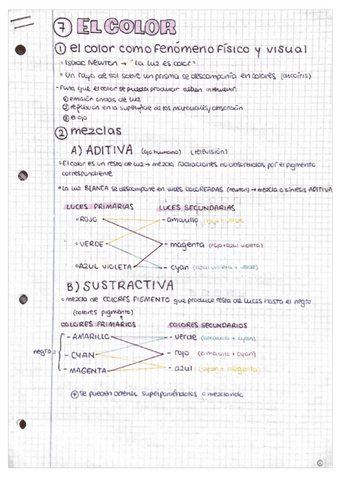 7 EL COLOR
1 el color como fenómeno físico y visual
- Isaac Newton → "la luz es color"
- Un rayo de sol sobre un prisma se descomponía en colores (arcoíris)
- Para que el color se pueda producir deben intervenir:
1 emisión de luz
2 reflexión en la superficie de los materiales/absorción
3 el ojo
2 mezclas
A) ADITIVA (ojo humano) (televisión)
El color es un resto de luz → mezcla radiaciones no absorbidas por el pigmento
correspondiente
La luz BLANCA se descompone en luces COLOREADAS (newton) → mezcla o síntesis ADITIVA
LUCES PRIMARIAS LUCES SECUNDARIAS
- ROJO - amarillo (rojo + verde)
- VERDE - magenta (rojo + azul violeta)
- AZUL VIOLETA - cyan (azul violeta + verde)
B) SUSTRACTIVA
mezcla de COLORES PIGMENTO que produce resta de luces hasta el negro
(colores pigmento)
COLORES PRIMARIOS COLORES SECUNDARIOS
- AMARILLO - verde (amarillo + cyan)
negro = - CYAN - rojo
- MAGENTA - azul (cyan + magenta)
se pueden obtener superponiéndolos o mezclando